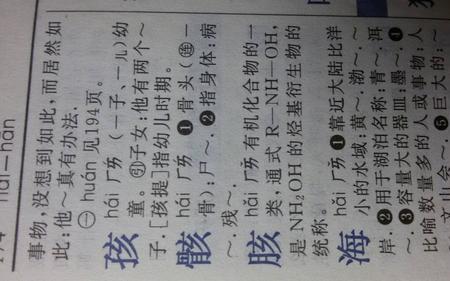 hai—hān
事物,没想到如此,而居然如
此:他~真有办法.
㊀huán见194页.
孩 hái ㄏㄞˊ (—子、—儿)幼
童。㊁子女:他有两个~
子.[孩提]指幼儿时期。
骸 hái ㄏㄞˊ ❶骨头(㊥—
骨):尸~. ❷指身体:病
~. 残~.
胲 hǎi ㄏㄞˇ 有机化合物的一
类,通式 R—NH—OH,
是NH₂OH的烃基衍生物的
统称。
海 hǎi ㄏㄞˇ ❶靠近大陆比洋
小的水域:黄~. 渤~. ~
岸. ❷用于湖泊名称:青~. 洱
~. ❸容量大的器皿:墨~. ❹
比喻数量多的人或事物:人
~. 文山会~. ❺巨大的:~